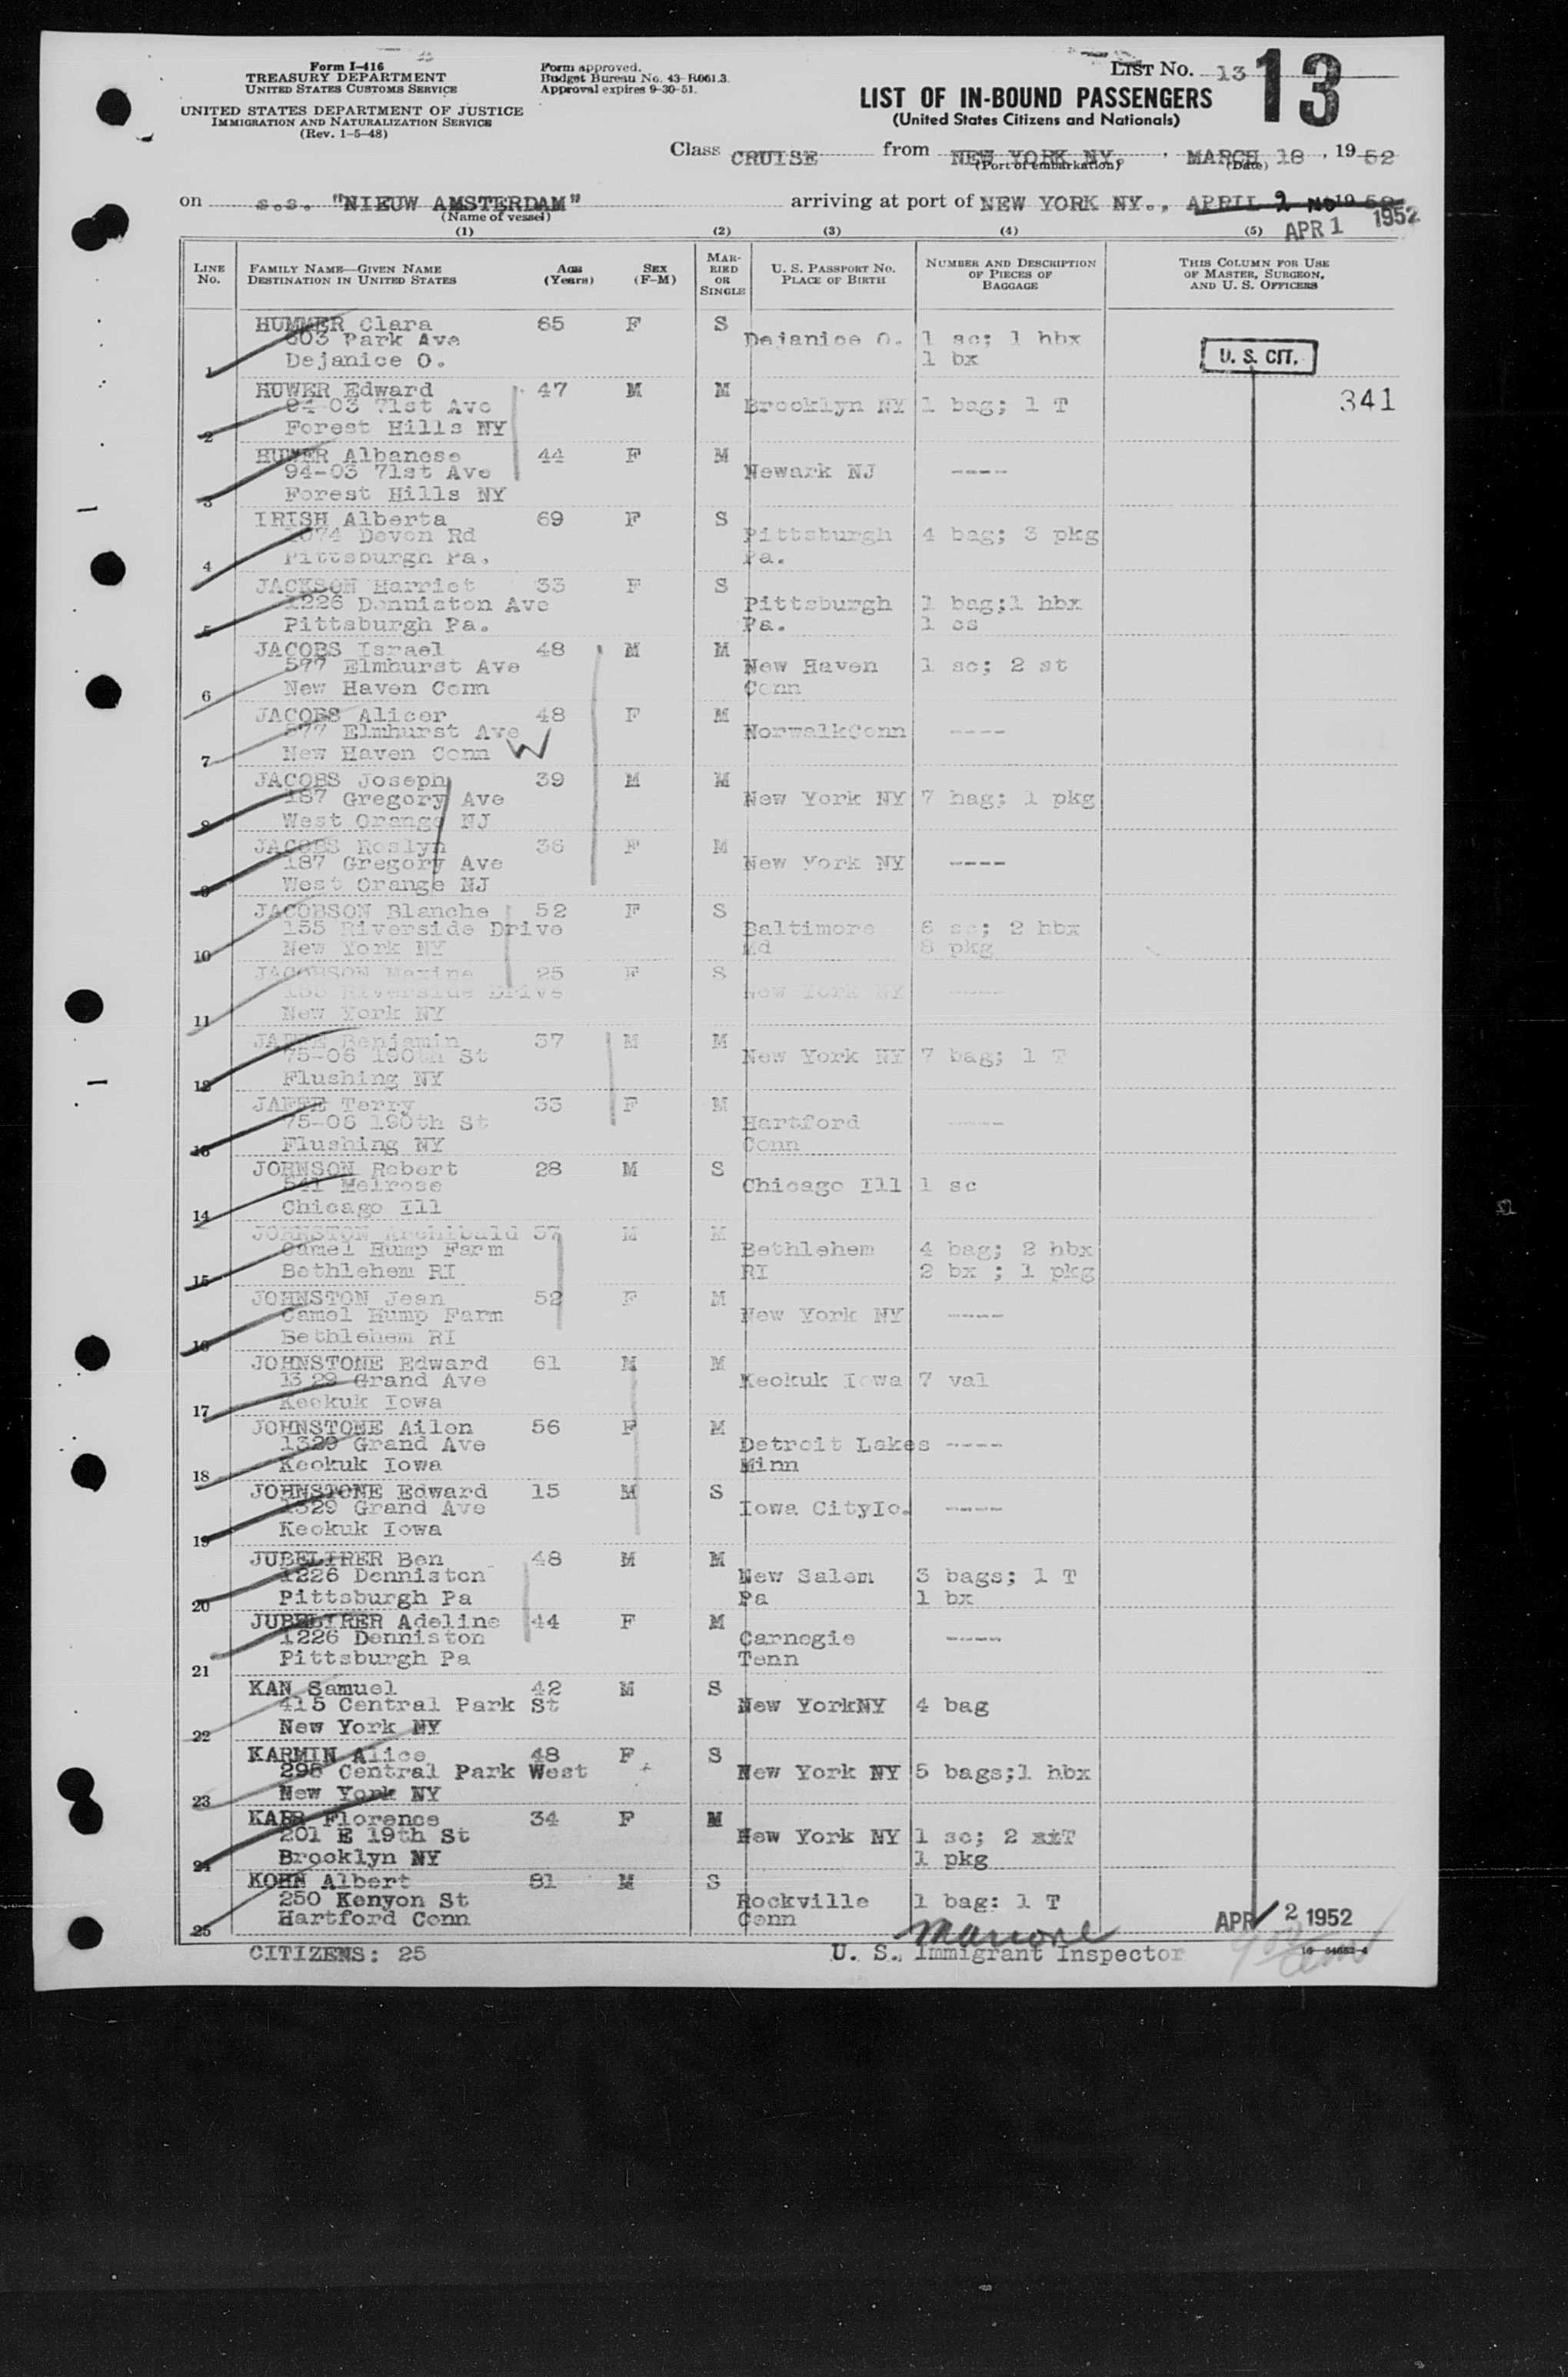 Form I-416
TREASURY DEPARTMENT
UNITED STATES CUSTOMS SERVICE
UNITED STATES DEPARTMENT OF JUSTICE
IMMIGRATION AND NATURALIZATION SERVICE
(Rev. 1-5-48)
Form approved.
Budget Bureau No. 43-R061.3.
Approval expires 9-30-51.
LIST No. 13
13
LIST OF IN-BOUND PASSENGERS
(United States Citizens and Nationals)
Class CRUISE from NEW YORK NY. , MARCH 18 , 19 52
(Port of embarkation) (Date)
on s.s. "NIEUW AMSTERDAM" arriving at port of NEW YORK NY., APRIL 2
(Name of vessel)
APR 1 1952
(1) (2) (3) (4) (5)
LINE No. FAMILY NAME—GIVEN NAME DESTINATION IN UNITED STATES AGE (Years) SEX (F-M) MARRIED OR SINGLE U. S. PASSPORT No. PLACE OF BIRTH NUMBER AND DESCRIPTION OF PIECES OF BAGGAGE THIS COLUMN FOR USE OF MASTER, SURGEON, AND U. S. OFFICERS
HUMMER Clara 65 F S
603 Park Ave Dejanice O. 1 sc; 1 hbx
1 Dejanice O. 1 bx
U. S. CIT.
HUWER Edward 47 M M
94-03 71st Ave Brooklyn NY 1 bag; 1 T
2 Forest Hills NY
341
HUWER Albanese 44 F M
94-03 71st Ave Newark NJ ----
3 Forest Hills NY
IRISH Alberta 69 F S
1074 Devon Rd Pittsburgh 4 bag; 3 pkg
4 Pittsburgh Pa. Pa.
JACKSON Harriet 33 F S
1226 Denniston Ave Pittsburgh 1 bag;1 hbx
5 Pittsburgh Pa. Pa. 1 cs
JACOBS Israel 48 M M
577 Elmhurst Ave New Haven 1 sc; 2 st
6 New Haven Conn Conn
JACOBS Alicer 48 F M
577 Elmhurst Ave NorwalkConn ----
7 New Haven Conn W
JACOBS Joseph 39 M M
187 Gregory Ave New York NY 7 hag; 1 pkg
8 West Orange NJ
JACOBS Roslyn 36 F M
187 Gregory Ave New York NY ----
9 West Orange NJ
JACOBSON Blanche 52 F S
155 Riverside Drive Baltimore 6 sc; 2 hbx
10 New York NY Md 8 pkg
JACOBSON Maxine 25 F S
155 Riverside Drive New York NY ----
11 New York NY
JAFFE Benjamin 37 M M
75-06 190th St New York NY 7 bag; 1 T
12 Flushing NY
JAFFE Terry 33 F M
75-06 190th St Hartford ----
13 Flushing NY Conn
JOHNSON Robert 28 M S
541 Melrose Chicago Ill 1 sc
14 Chicago Ill
JOHNSTON Archibald 57 M M
Camel Hump Farm Bethlehem 4 bag; 2 hbx
15 Bethlehem RI RI 2 bx ; 1 pkg
JOHNSTON Jean 52 F M
Camel Hump Farm New York NY ----
16 Bethlehem RI
JOHNSTONE Edward 61 M M
13 29 Grand Ave Keokuk Iowa 7 val
17 Keokuk Iowa
JOHNSTONE Ailen 56 F M
1329 Grand Ave Detroit Lakes ----
18 Keokuk Iowa Minn
JOHNSTONE Edward 15 M S
1329 Grand Ave Iowa CityIo. ----
19 Keokuk Iowa
JUBELIRER Ben 48 M M
1226 Denniston New Salem 3 bags; 1 T
20 Pittsburgh Pa Pa 1 bx
JUBELIRER Adeline 44 F M
1226 Denniston Carnegie ----
21 Pittsburgh Pa Tenn
KAN Samuel 42 M S
415 Central Park St New YorkNY 4 bag
22 New York NY
KARMIN Alice 48 F S
295 Central Park West New York NY 5 bags;1 hbx
23 New York NY
KARR Florence 34 F M
201 E 19th St New York NY 1 sc; 2 xtT
24 Brooklyn NY 1 pkg
KOHN Albert 81 M S
250 Kenyon St Rockville 1 bag: 1 T
25 Hartford Conn Conn
APR 2 1952
CITIZENS: 25 U. S. Immigrant Inspector
16-54652-4